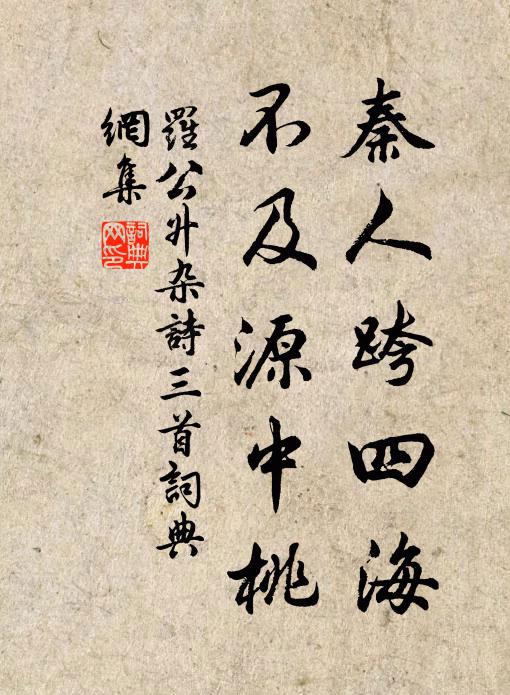 秦人跨四海
不及源中桃
羅公升杂詩三首詞典
網集
詞典
网印